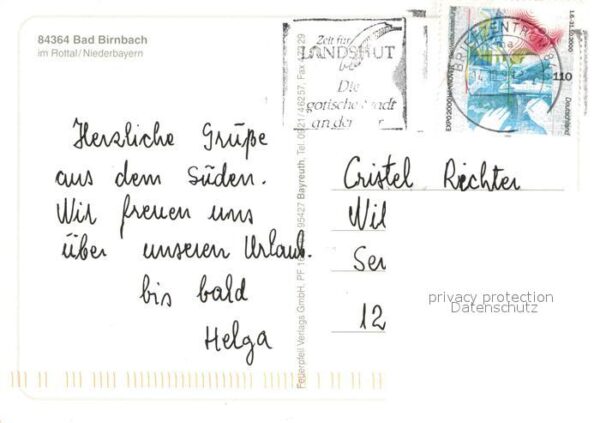 84364 Bad Birnbach
im Rottal/Niederbayern
Zeit für
LANDSHUT
Die
gotische Stadt
an der
BRIEFZENTRUM 84
110
1.6.-31.10.2000
EXPO2000 HANNOVER
Deutschland
Herzliche Grüße
aus dem Süden.
Wir freuen uns
über unseren Urlaub.
bis bald
Helga
Feuerpfeil Verlags GmbH, PF 95427 Bayreuth, Tel. 0921/46257, Fax 29
Cristel Richter
Wil
Ser
12
privacy protection
Datenschutz